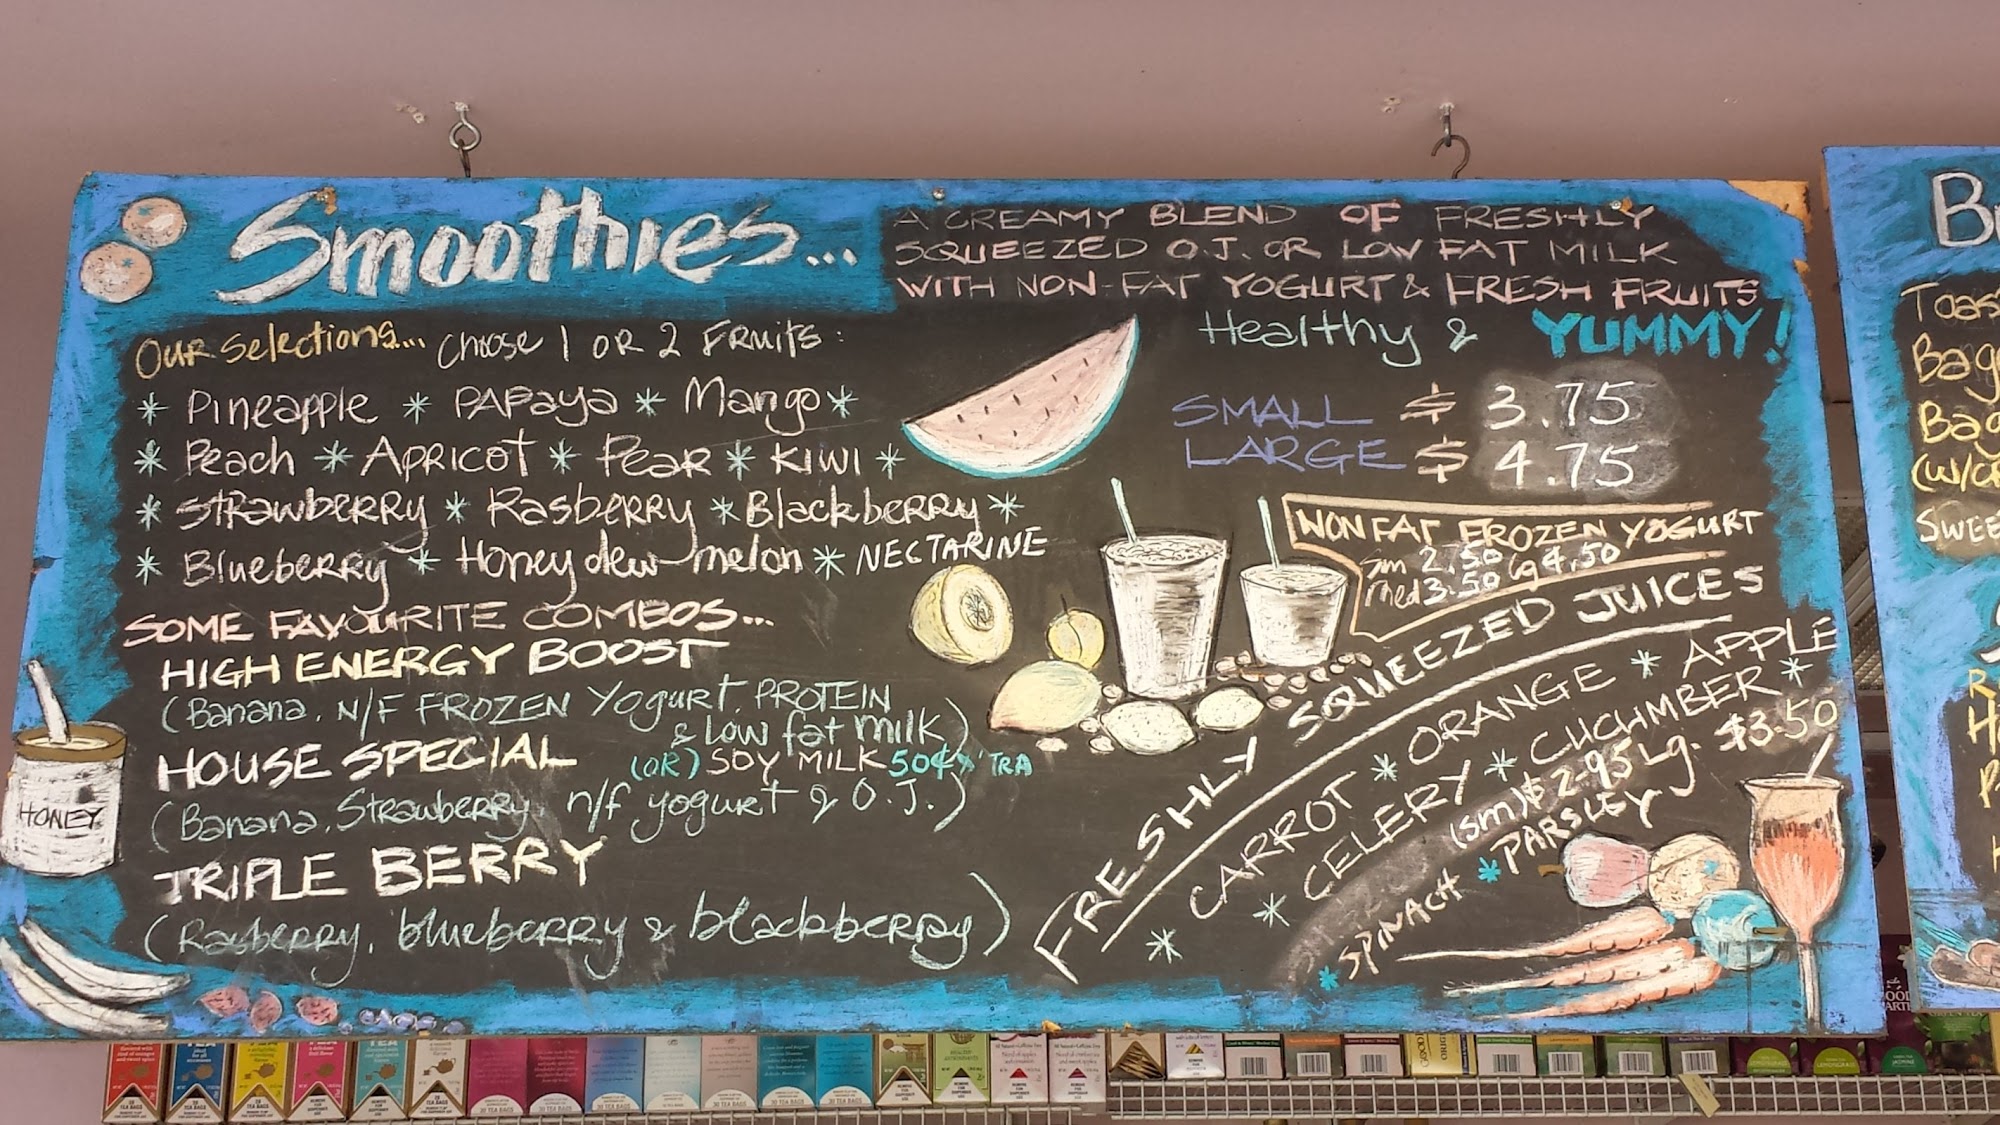 Smoothies...
A CREAMY BLEND OF FRESHLY
SQUEEZED O.J. OR LOW FAT MILK
WITH NON-FAT YOGURT & FRESH FRUITS
Healthy & YUMMY!
Our Selections... Choose 1 OR 2 Fruits:
* Pineapple * PAPaya * Mango *
* Peach * Apricot * Pear * Kiwi *
* Strawberry * Rasberry * Blackberry *
* Blueberry * Honey dew melon * NECTARINE
SMALL $ 3.75
LARGE $ 4.75
NON FAT FROZEN YOGURT
Sm 2.50
med 3.50 Lg 4.50
SOME FAVOURITE COMBOS...
HIGH ENERGY BOOST
(Banana, N/F FROZEN Yogurt, PROTEIN
& Low fat milk)
(OR) SOY MILK 50¢ X'TRA
HOUSE SPECIAL
(Banana, Strawberry, n/f yogurt & O.J.)
TRIPLE BERRY
(Rasberry, blueberry & blackberry)
FRESHLY SQUEEZED JUICES
* CARROT * ORANGE * APPLE
* CELERY * CUCUMBER *
(sm) $2-95 Lg. $3.50
* SPINACH * PARSLEY
HONEY
Toas
Bag
Bag
SWEE
TEA
TEA BAGS
30 TEA BAGS
30 TEA BAGS
30 TEA BAGS
LEMONGRASS
JASMINE